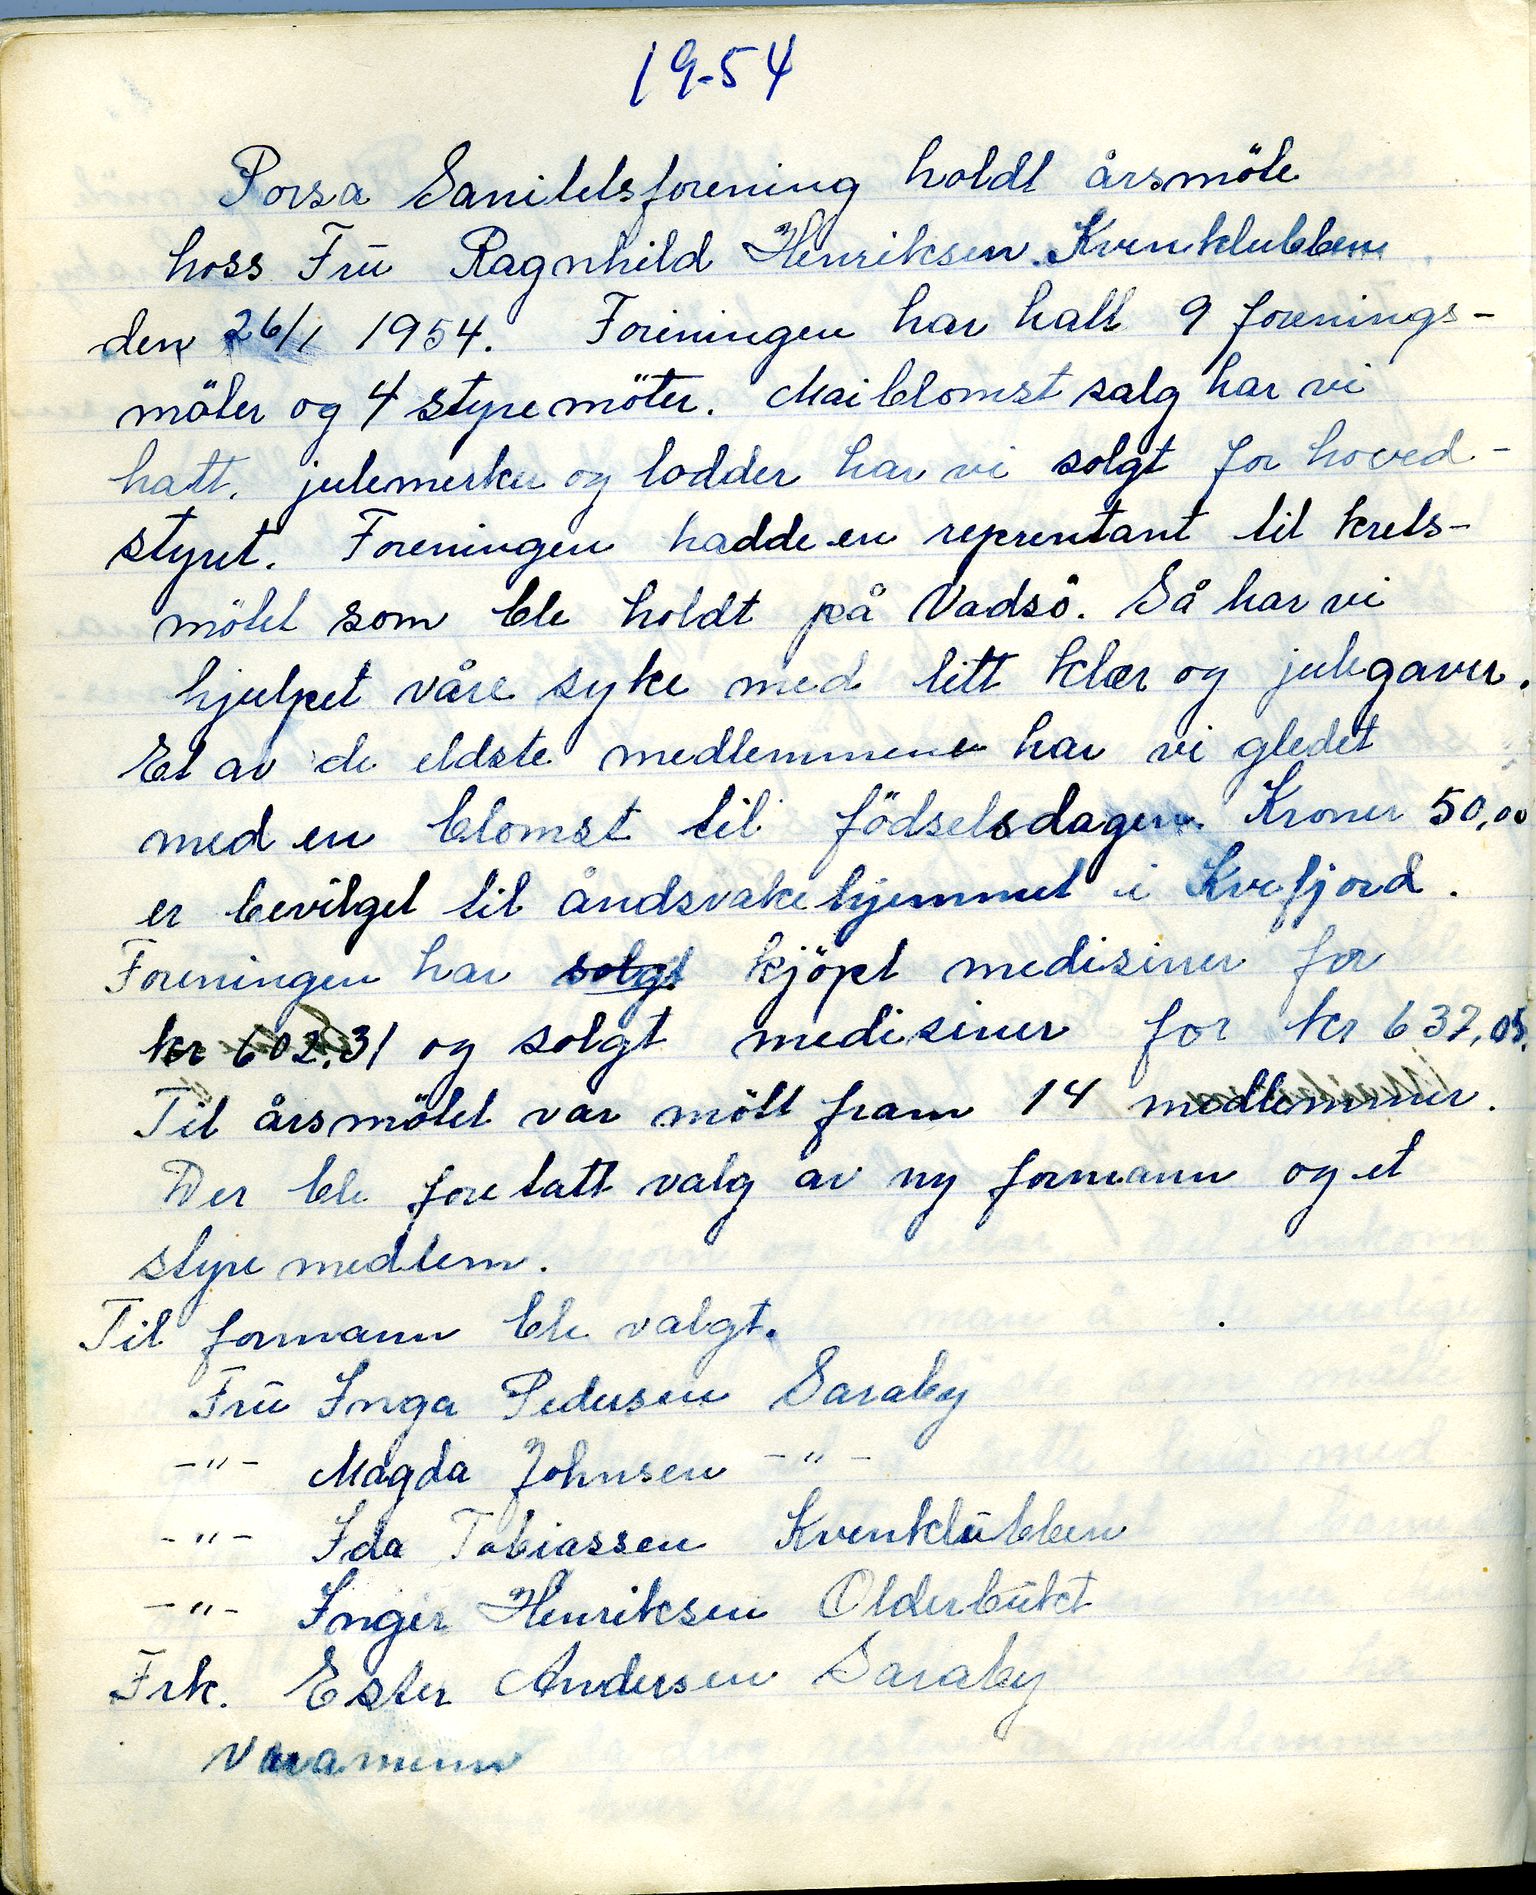 19-54
Porsa Sanitetsforening holdt årsmöte
hoss Frü Ragnhild Henriksen. Kvenklubben
den 26/1 1954. Foreningen har hatt 9 forenings-
möter og 4 styremöter. Maiblomst salg har vi
hatt, julemerker og lodder har vi solgt for hoved-
styret. Foreningen hadde en reprentant til krets-
mötet som ble holdt på Vadsö. Så har vi
hjulpet våre syke med litt klær og julegaver.
Et av de eldste medlemmene har vi gledet
med en blomst til födselsdagen. Kroner 50,00
er bevilget til åndsvakehjemmet i Kvefjord.
Foreningen har solgt kjöpt medisiner for
kr 602.31 og solgt medisiner for kr 637,05.
Til årsmötet var mött fram 14 medlemmer.
Der ble foretatt valg av ny formann og et
styremedlem.
Til formann ble valgt.
Frü Inga Pedersen Saraby
-"- Magda Johnsen -"-
-"- Ida Tobiassen Kvenklübben
-"- Inger Henriksen Olderbükt
Frk. Ester Andersen Saraby
Varamenn